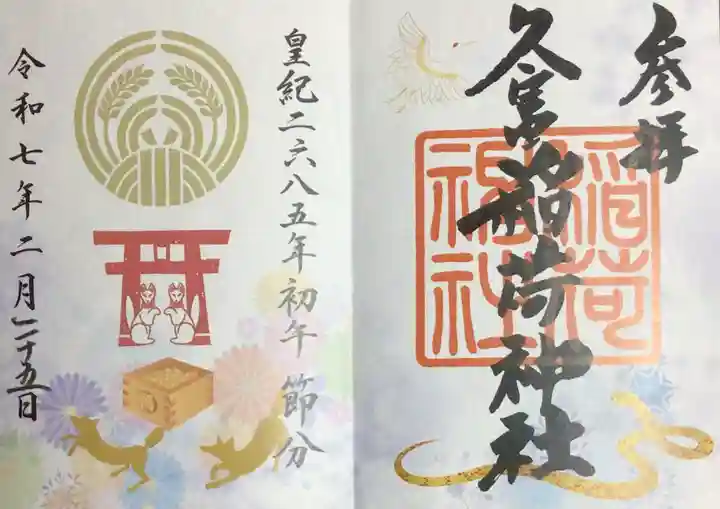 参拝
久富稲荷神社
稲荷
神社
皇紀二六八五年初午 節分
令和七年二月二十五日